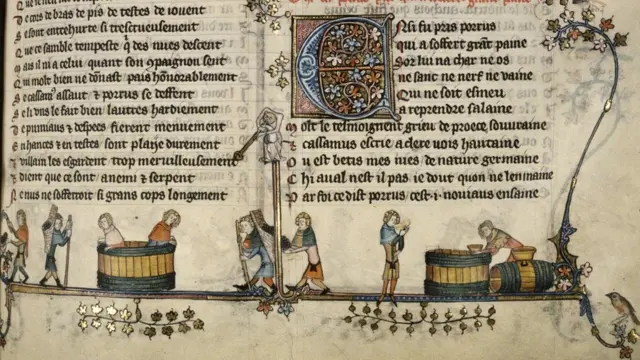 De cors de bras de pis de testes de iouent
S sont entrehurte si trescrueusement
Que ce samble tempeste q̃ des nues descent
Mais il ni a celui quant son ꝯpaignon sent
Qui molt bien ne donast pais honorablement
Se cassanꝰ assaut & porrus se deffent
Se li uns le fait bien lautres hardiement
De pumiaus & despees fierent menuement
hances & en testes sont plaiie durement
les esgardent trop merueilleusement
dient que ce sont anemi & serpent
Ne nus ne sofferroit si grans cops longement
Ensi fu pris porrus
qui a soffert grãt paine
Sor lui na char ne os
ne sanc ne nerf ne vaine
Qui ne soit esmeu
a reprendre salaine
Molt le tesmoignent grieu de proece souuraine
Cassamus escrie a clere uois hautaine
Ou est betis mes nies de nature germaine
nest il pas ie dout quon ne lenmaine
Par foi ce dist porrus cest .i. nouiaus ensaine